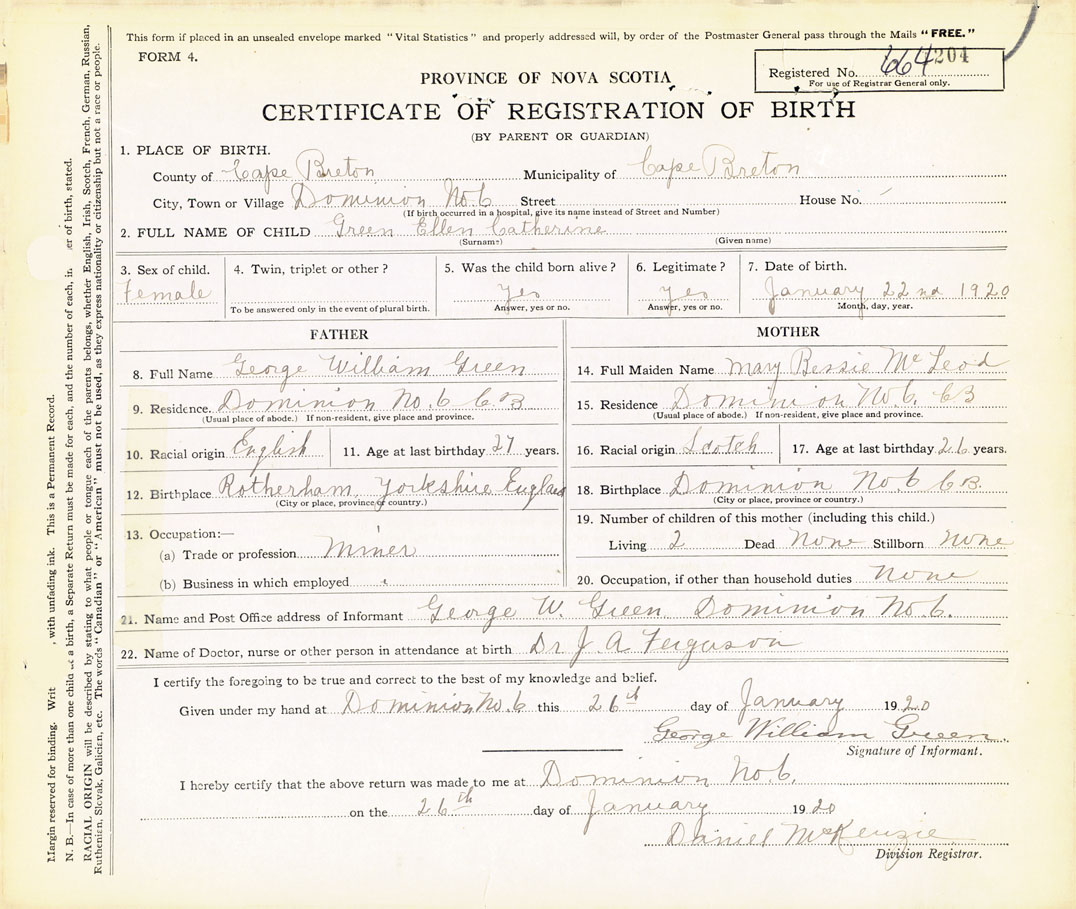 This form if placed in an unsealed envelope marked "Vital Statistics" and properly addressed will, by order of the Postmaster General pass through the Mails "FREE."
FORM 4.
Registered No. 664 204
For use of Registrar General only.
PROVINCE OF NOVA SCOTIA
CERTIFICATE OF REGISTRATION OF BIRTH
(BY PARENT OR GUARDIAN)
1. PLACE OF BIRTH.
County of Cape Breton Municipality of Cape Breton
City, Town or Village Dominion No. 6 Street House No.
(If birth occurred in a hospital, give its name instead of Street and Number)
2. FULL NAME OF CHILD Green Ellen Catherine
(Surname) (Given name)
3. Sex of child. 4. Twin, triplet or other? 5. Was the child born alive? 6. Legitimate? 7. Date of birth.
Female yes yes January 22nd 1920
To be answered only in the event of plural birth. Answer, yes or no. Answer, yes or no. Month, day, year.
FATHER
8. Full Name George William Green
9. Residence. Dominion No. 6 C.B
(Usual place of abode.) If non-resident, give place and province.
10. Racial origin English 11. Age at last birthday 27 years.
12. Birthplace Rotherham, Yorkshire England
(City or place, province or country.)
13. Occupation:—
(a) Trade or profession Miner
(b) Business in which employed
MOTHER
14. Full Maiden Name Mary Bessie McLeod
15. Residence Dominion No. 6. CB
(Usual place of abode.) If non-resident, give place and province.
16. Racial origin Scotch 17. Age at last birthday 26 years.
18. Birthplace Dominion No. 6 C.B.
(City or place, province or country.)
19. Number of children of this mother (including this child.)
Living 2 Dead None Stillborn None
20. Occupation, if other than household duties None
21. Name and Post Office address of Informant George W. Green Dominion No. 6.
22. Name of Doctor, nurse or other person in attendance at birth Dr J. A Ferguson
I certify the foregoing to be true and correct to the best of my knowledge and belief.
Given under my hand at Dominion No. 6 this 26th day of January 1920
George William Green.
Signature of Informant.
I hereby certify that the above return was made to me at Dominion No. 6.
on the 26th day of January 1920
Daniel McKenzie
Division Registrar.
Margin reserved for binding. Writ , with unfading ink. This is a Permanent Record.
N. B.—In case of more than one child at a birth, a Separate Return must be made for each, and the number of each, in er of birth, stated.
RACIAL ORIGIN will be described by stating to what people or tongue each of the parents belongs, whether English, Irish, Scotch, French, German, Russian,
Ruthenian, Slovak, Galician, etc. The words "Canadian" or "American" must not be used, as they express nationality or citizenship but not a race or people.